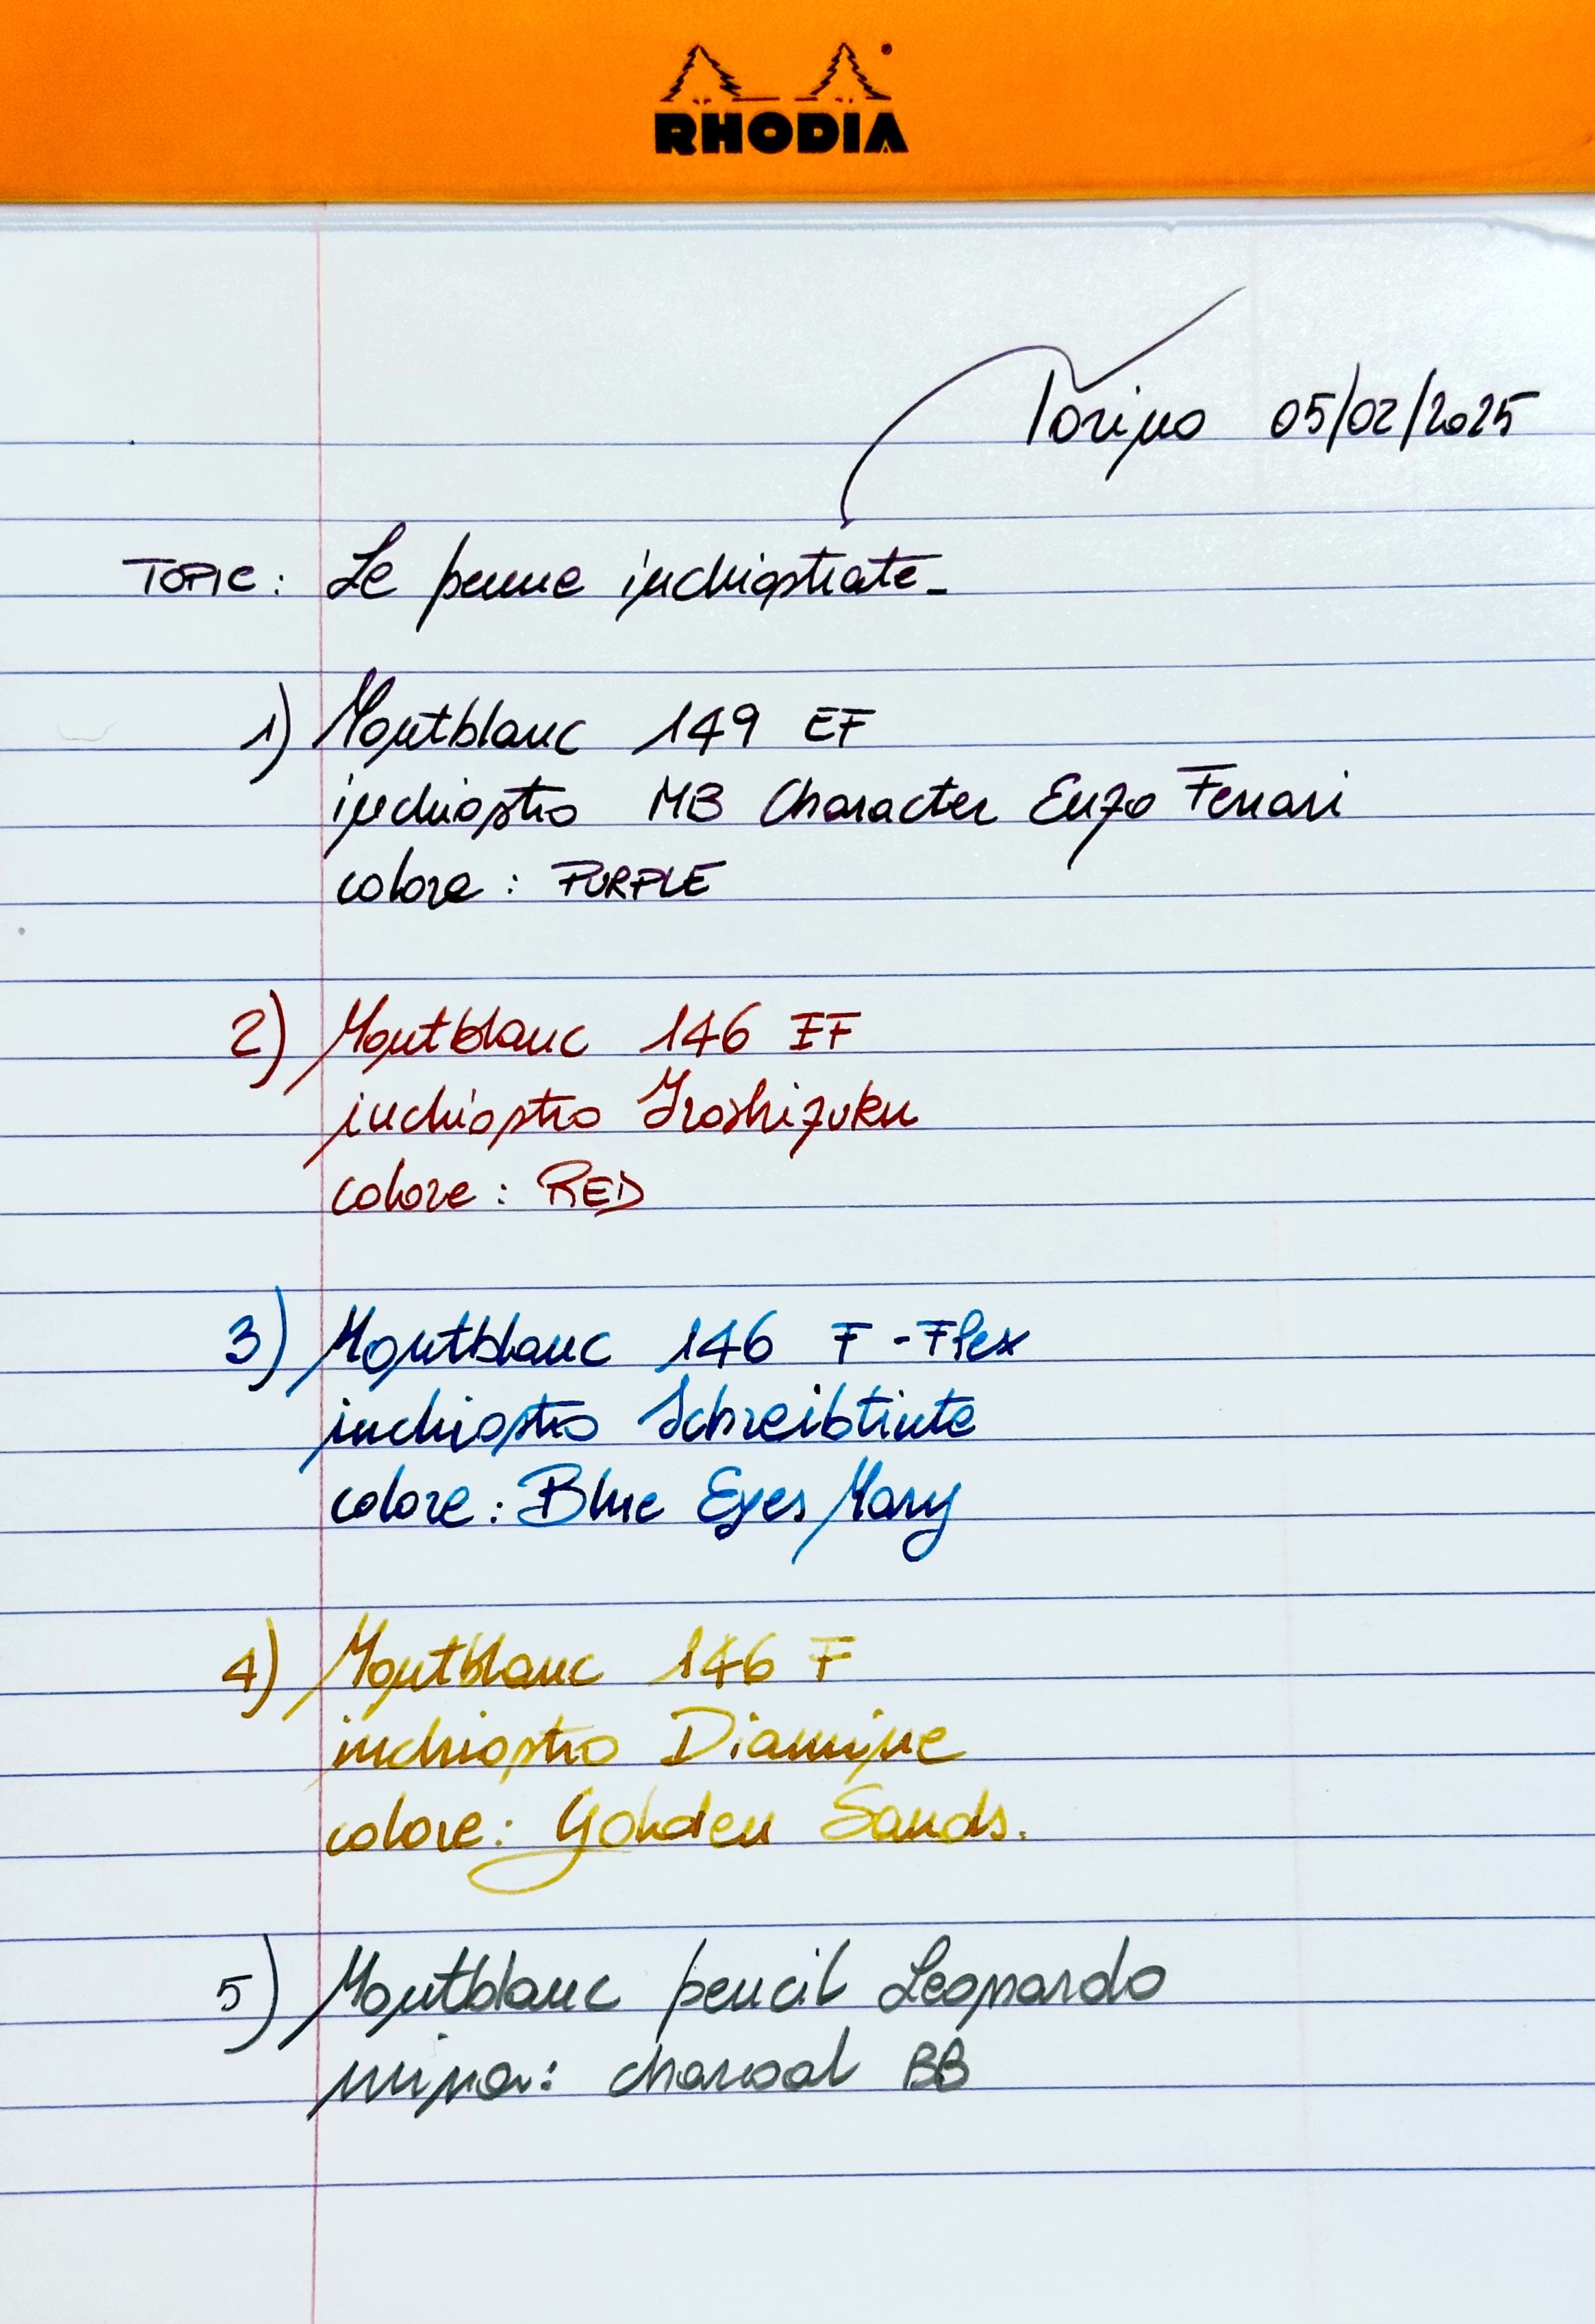 RHODIA
Torino 05/02/2025
TOPIC: Le penne inchiostrate
1) Montblanc 149 EF
inchiostro MB Character Enzo Ferrari
colore: PURPLE
2) Montblanc 146 EF
inchiostro Iroshizuku
colore: RED
3) Montblanc 146 F-Flex
inchiostro Schreibtinte
colore: Blue Eyes Mary
4) Montblanc 146 F
inchiostro Diamine
colore: Golden Sands.
5) Montblanc pencil Leonardo
mina: charcoal BB